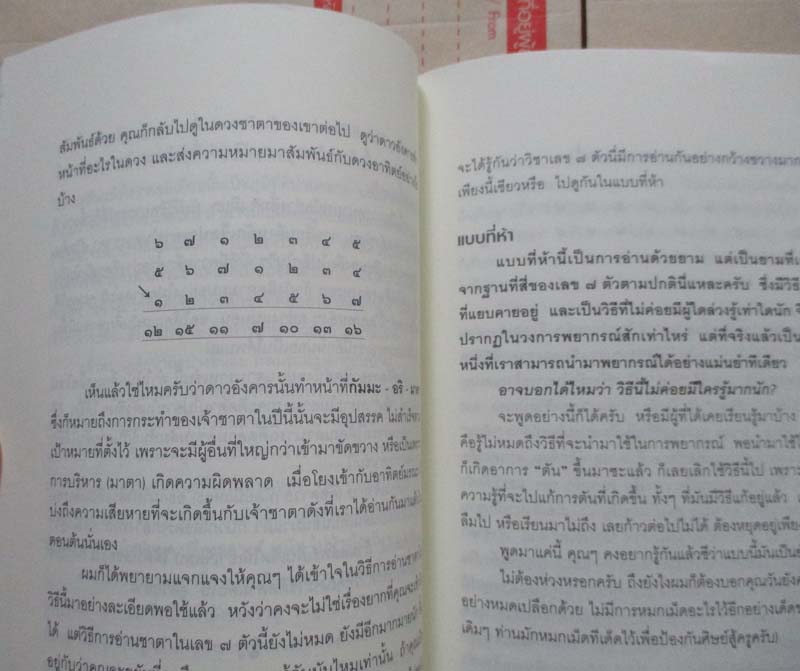 ที่อยู่ผู้
/ From
สัมพันธ์ด้วย คุณก็กลับไปดูในดวงชาตาของเขาต่อไป ดูว่าดาวอังคาร
หน้าที่อะไรในดวง และส่งความหมายมาสัมพันธ์กับดวงอาทิตย์
บ้าง
๖ ๗ ๑ ๒ ๓ ๔ ๕
๕ ๖ ๗ ๑ ๒ ๓ ๔
๑ ๒ ๓ ๔ ๕ ๖ ๗
๑๒ ๑๕ ๑๑ ๗ ๑๐ ๑๓ ๑๖
เห็นแล้วใช่ไหมครับว่าดาวอังคารนั้นทำหน้าที่กัมมะ - อริ -
ซึ่งก็หมายถึงการกระทำของเจ้าชาตาในปีนี้นั้นจะมีอุปสรรค ไม่สำเร็จ
เป้าหมายที่ตั้งไว้ เพราะจะมีผู้อื่นที่ใหญ่กว่าเข้ามาขัดขวาง หรือเป็น
การบริหาร (มาตา) เกิดความผิดพลาด เมื่อโยงเข้ากับอาทิตย์
บ่งถึงความเสียหายที่จะเกิดขึ้นกับเจ้าชาตาดังที่เราได้อ่านกันมา
ตอนต้นนั่นเอง
ผมก็ได้พยายามแจกแจงให้คุณๆ ได้เข้าใจในวิธีการอ่านชาตา
วิธีนี้มาอย่างละเอียดพอใช้แล้ว หวังว่าคงจะไม่ใช่เรื่องยากที่คุณจะ
ได้ แต่วิธีการอ่านชาตาในเลข ๗ ตัวนี้ยังไม่หมด ยังมีอีกมากมาย
จะได้รู้กันว่าวิชาเลข ๗ ตัวนี้มีการอ่านกันอย่างกว้างขวางมาก
เพียงนี้เชียวหรือ ไปดูกันในแบบที่ห้า
แบบที่ห้า
แบบที่ห้านี้เป็นการอ่านด้วยยาม แต่เป็นยามที่
จากฐานที่สี่ของเลข ๗ ตัวตามปกตินี่แหละครับ ซึ่งมีวิธี
ที่แยบคายอยู่ และเป็นวิธีที่ไม่ค่อยมีผู้ใดล่วงรู้เท่าใดนัก
ปรากฏในวงการพยากรณ์สักเท่าไหร่ แต่ที่จริงแล้วเป็น
หนึ่งที่เราสามารถนำมาพยากรณ์ได้อย่างแม่นยำทีเดียว
อาจบอกได้ไหมว่า วิธีนี้ไม่ค่อยมีใครรู้มากนัก?
จะพูดอย่างนี้ก็ได้ครับ หรือมีผู้ที่ได้เคยเรียนรู้มาบ้าง
คือรู้ไม่หมดถึงวิธีที่จะนำมาใช้ในการพยากรณ์ พอนำมาใช้
ก็เกิดอาการ "ตัน" ขึ้นมาซะแล้ว ก็เลยเลิกใช้วิธีนี้ไป เพราะ
ความรู้ที่จะไปแก้การตันที่เกิดขึ้น ทั้งๆ ที่มันมีวิธีแก้อยู่แล้ว
ลืมไป หรือเรียนมาไม่ถึง เลยก้าวต่อไปไม่ได้ ต้องหยุดอยู่เพียง
พูดมาแค่นี้ คุณๆ คงอยากรู้กันแล้วซีว่าแบบนี้มันเป็น
ไม่ต้องห่วงหรอกครับ ถึงยังไงผมก็ต้องบอกคุณวันยังค่ำ
อย่างหมดเปลือกด้วย ไม่มีการหมกเม็ดอะไรไว้อีกอย่างเด็ด
เดิมๆ ท่านมักหมกเม็ดทีเด็ดไว้เพื่อป้องกันศิษย์สู้ครูครับ)